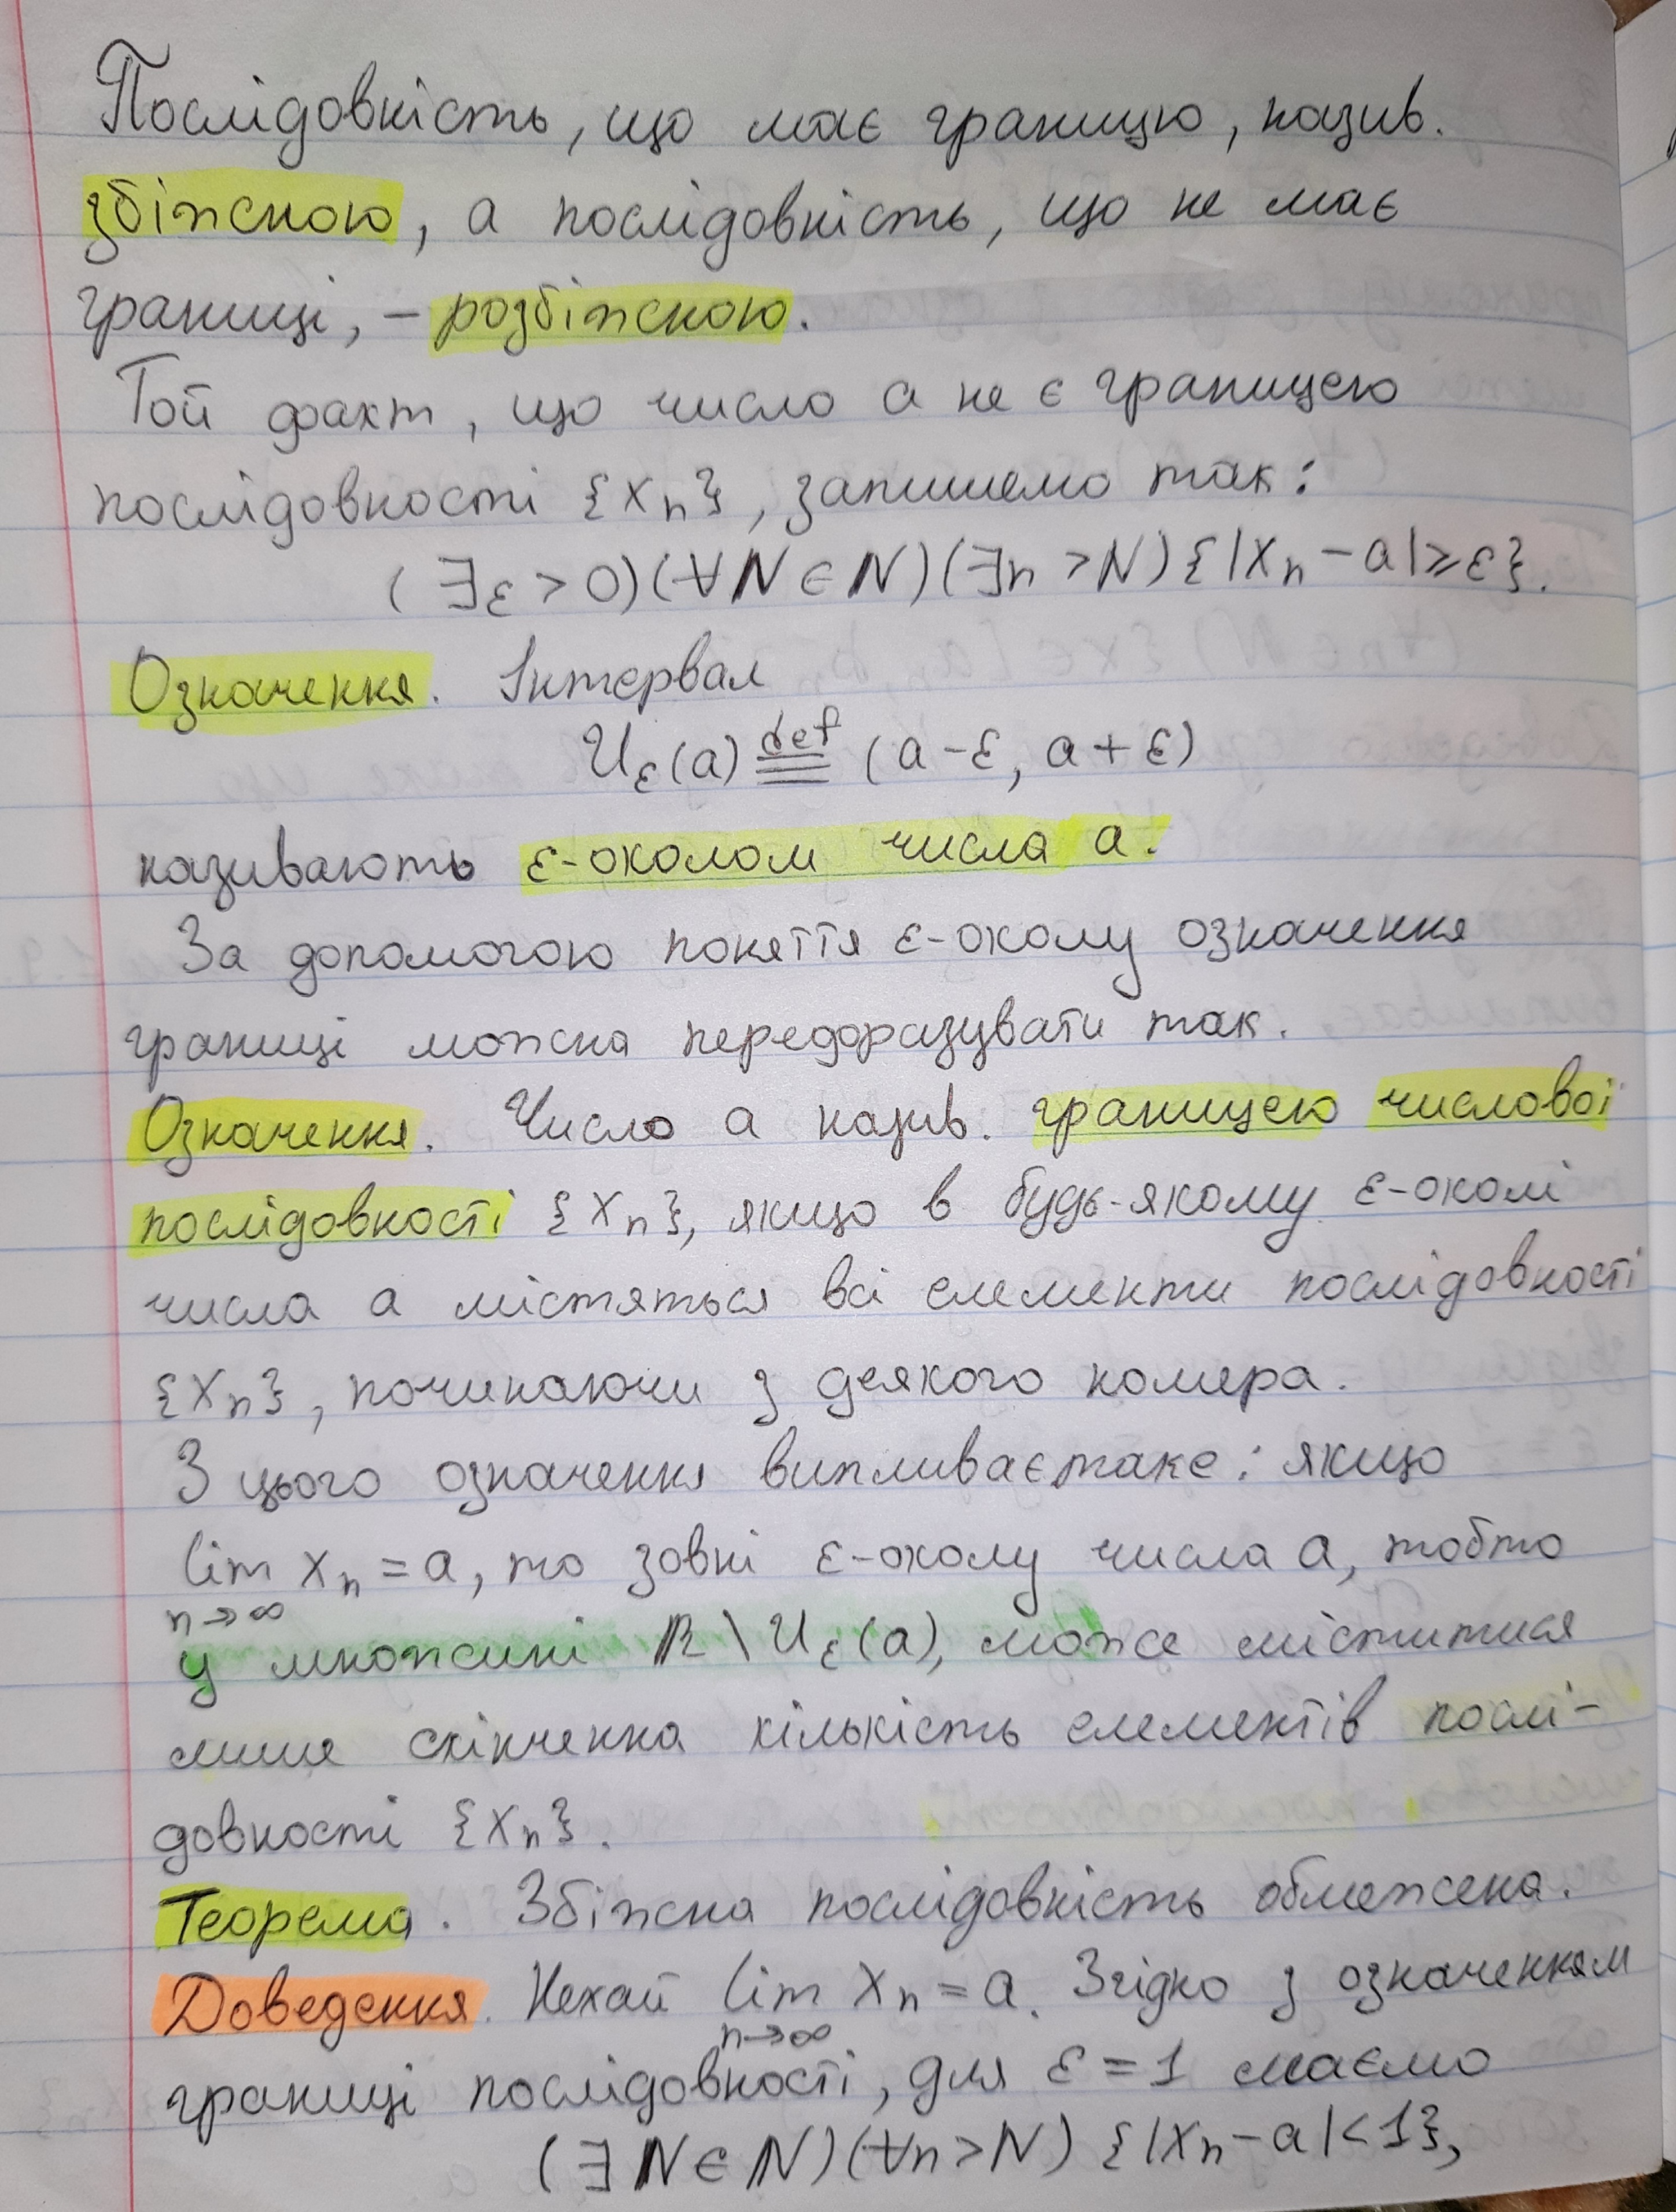 Послідовність, що має границю, назив.
збіжною, а послідовність, що не має
границі, – розбіжною.
Той факт, що число a не є границею
послідовності {xₙ}, запишемо так:
(∃ε > 0)(∀N ∈ N)(∃n > N){|xₙ − a| ≥ ε}.
Означення. Інтервал
Uε(a) ≝ (a − ε, a + ε)
називають ε-околом числа a.
За допомогою поняття ε-околу означення
границі можна перефразувати так.
Означення. Число a назив. границею числової
послідовності {xₙ}, якщо в будь-якому ε-околі
числа a містяться всі елементи послідовності
{xₙ}, починаючи з деякого номера.
З цього означення випливає таке: якщо
lim xₙ = a, то зовні ε-околу числа a, тобто
n→∞
у множині R \ Uε(a), може міститися
лише скінченна кількість елементів послі-
довності {xₙ}.
Теорема. Збіжна послідовність обмежена.
Доведення. Нехай lim xₙ = a. Згідно з означенням
n→∞
границі послідовності, для ε = 1 маємо
(∃N ∈ N)(∀n > N) {|xₙ − a| < 1},